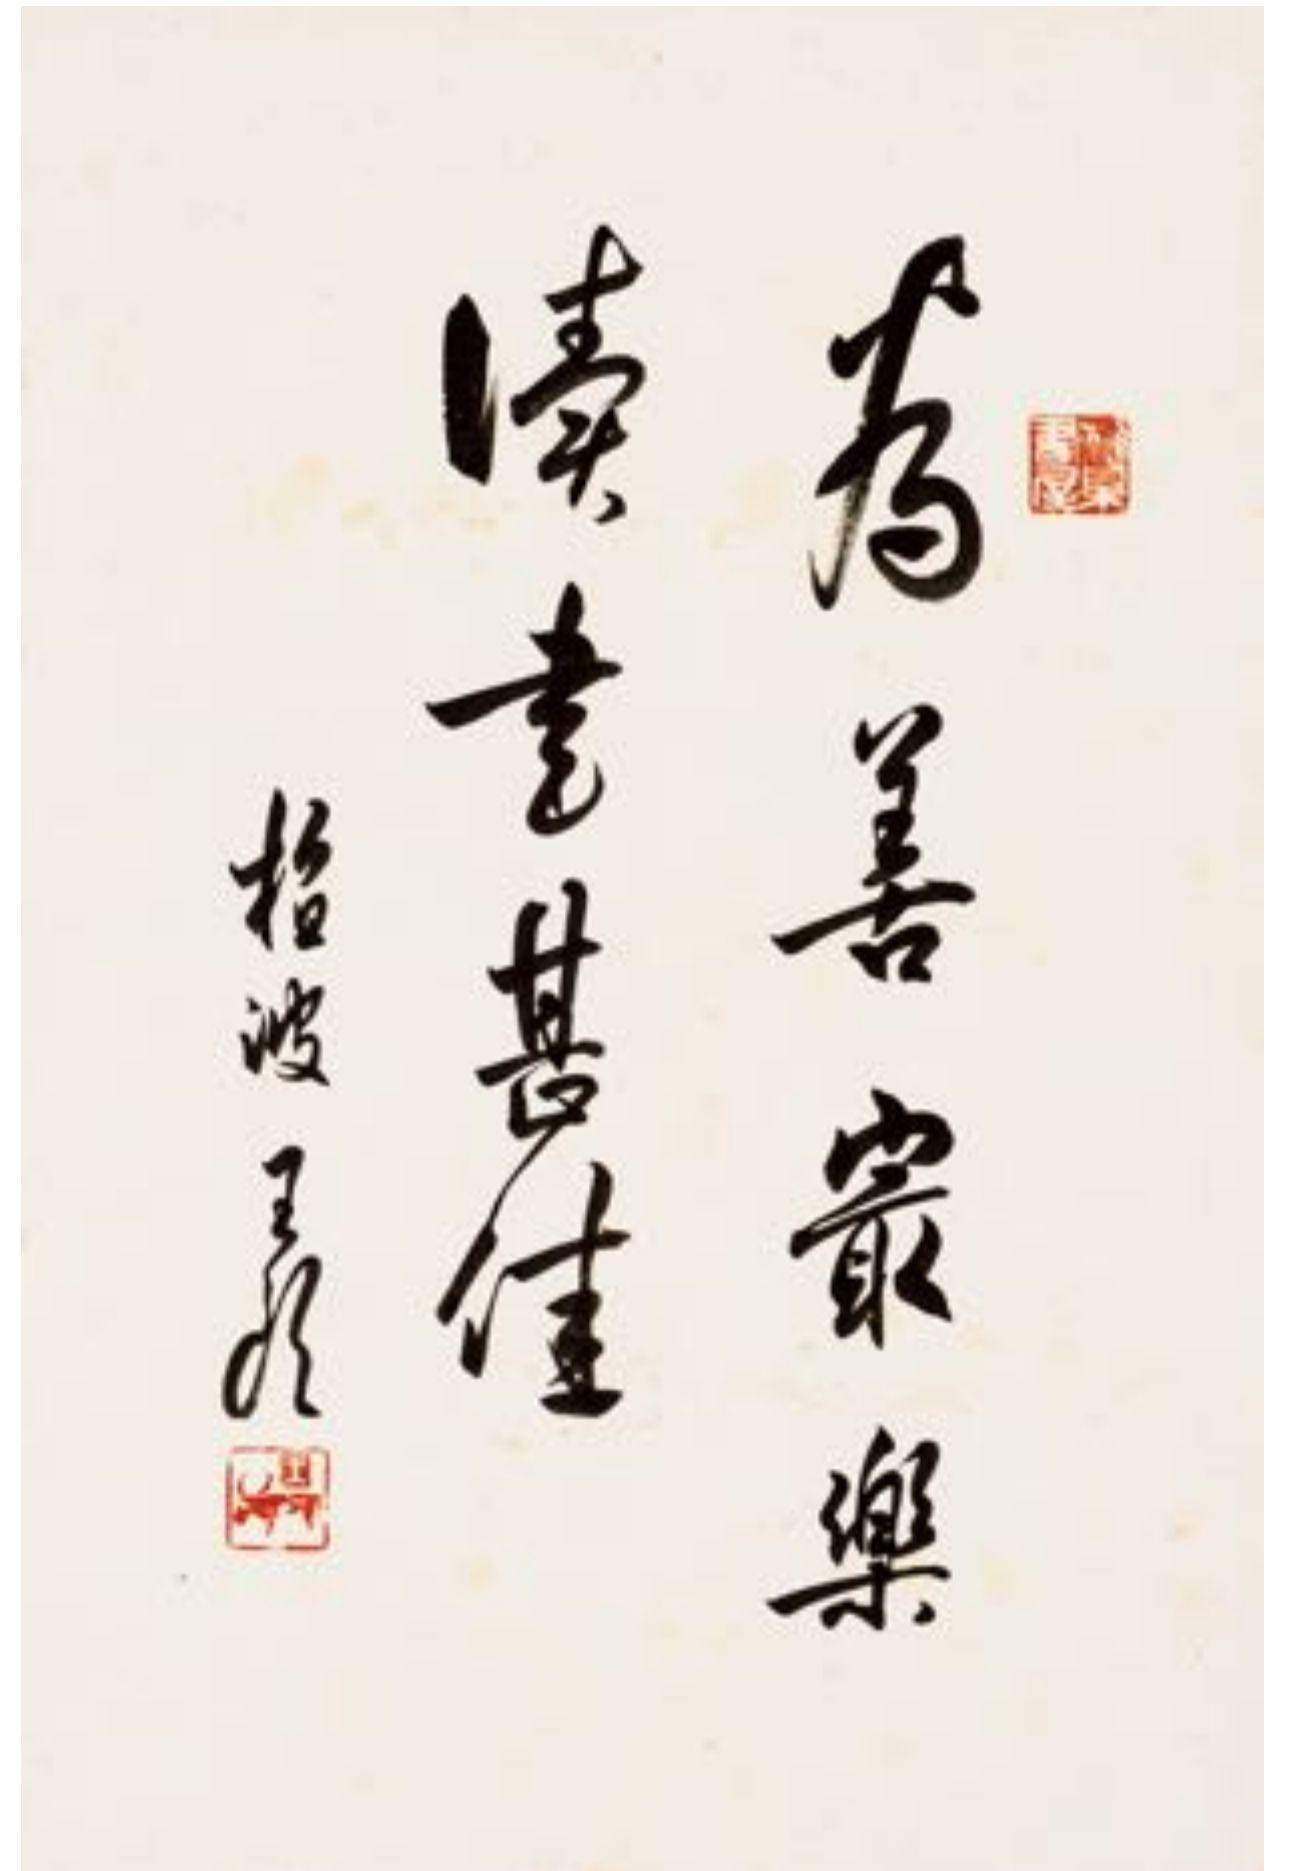 為善最樂
讀書甚佳
波 王